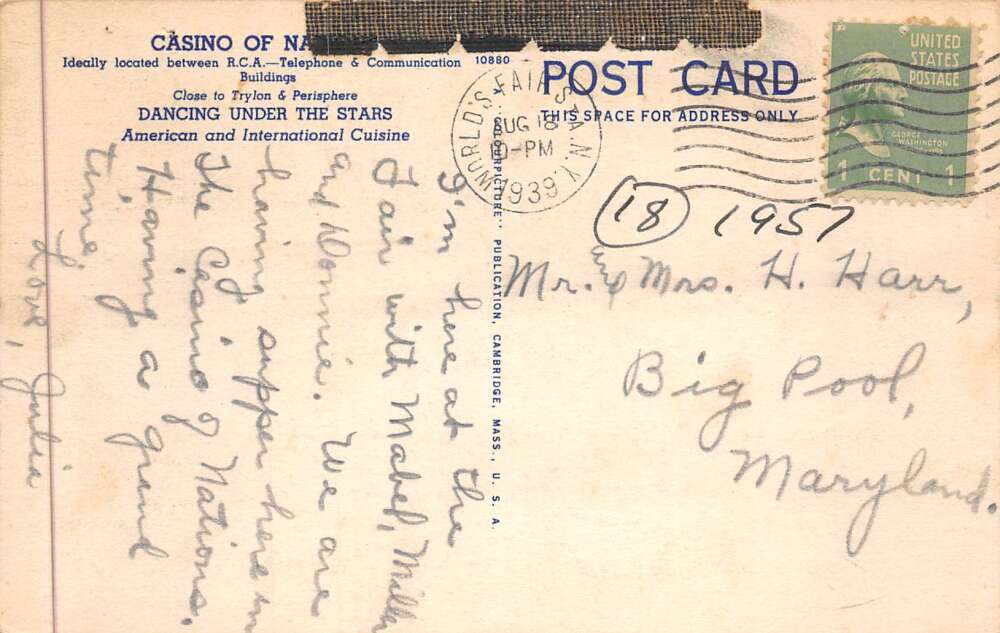 CASINO OF NA
Ideally located between R.C.A.—Telephone & Communication
Buildings
Close to Trylon & Perisphere
DANCING UNDER THE STARS
American and International Cuisine
10880
POST CARD
THIS SPACE FOR ADDRESS ONLY
WORLD'S FAIR STA. N.Y.
AUG 18
-PM
1939
UNITED
STATES
POSTAGE
GEORGE
WASHINGTON
1 CENT 1
PUBLICATION, CAMBRIDGE, MASS., U. S. A.
I'm here at the
Fair with Mabel, Miller
and Donnie. We are
having supper here in
The Casino of Nations.
Having a grand
time,
Love, Julia
18 1957
Mr. and Mrs. H. Harr,
Big Pool,
Maryland.